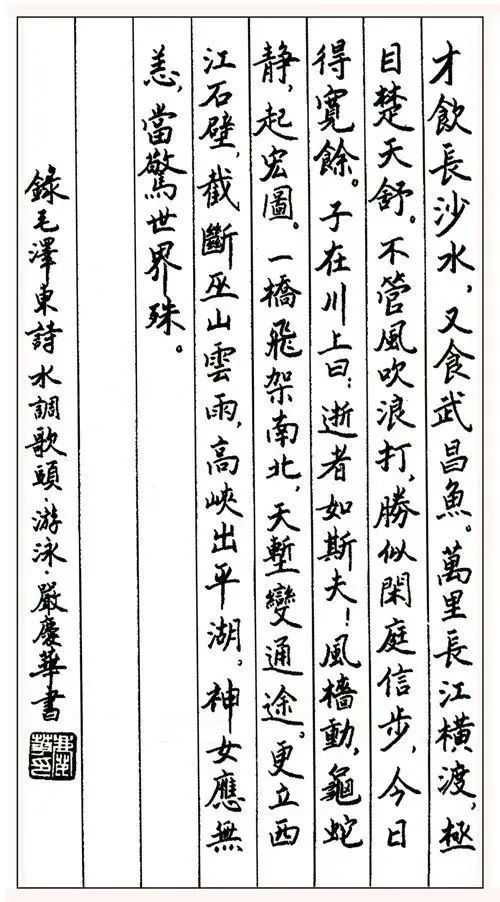 才飲長沙水，又食武昌魚。萬里長江橫渡，極
目楚天舒。不管風吹浪打，勝似閑庭信步，今日
得寬餘。子在川上曰：逝者如斯夫！風檣動，龜蛇
静，起宏圖。一橋飛架南北，天塹變通途。更立西
江石壁，截斷巫山雲雨，高峽出平湖。神女應無
恙，當驚世界殊。
錄毛澤東詩水調歌頭·游泳·嚴慶華書